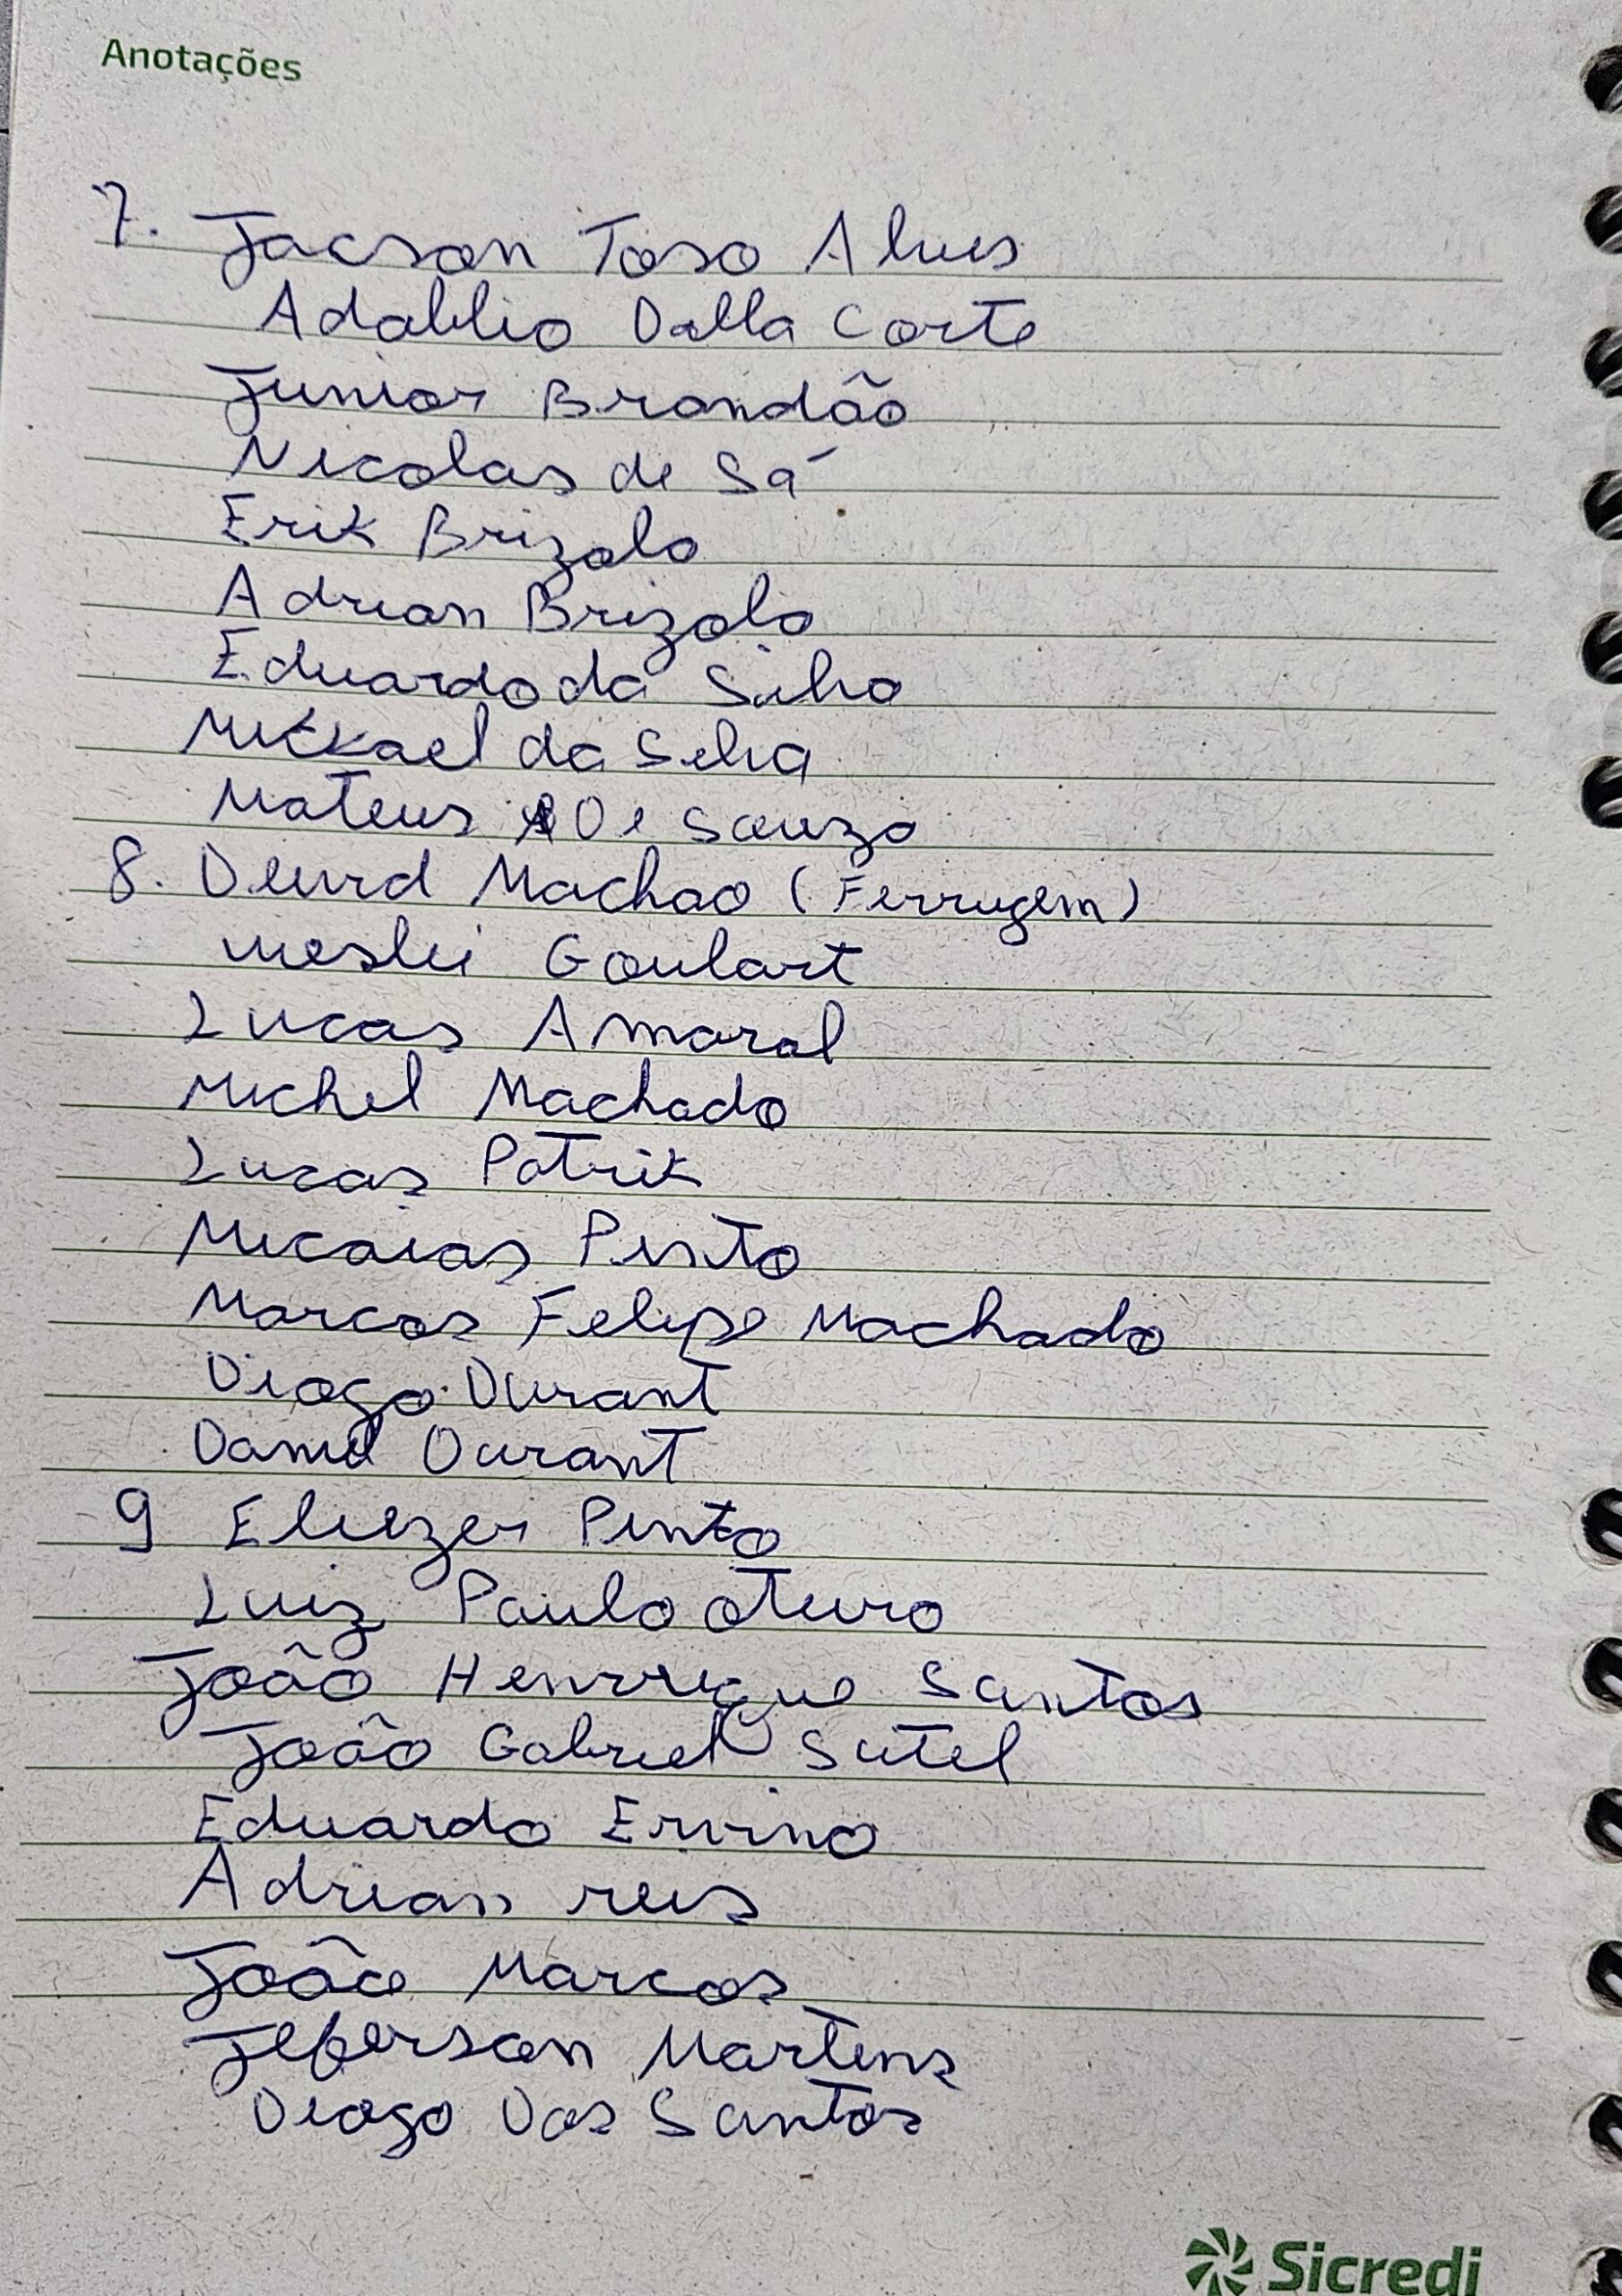 Anotações
7. Jacson Toso Alves
Adablio Dalla Corte
Junior Brandão
Nicolas de Sá
Erik Brizola
Adrian Brizola
Eduardo da Silva
Mickael da Silva
Mateus De Souza
8. Machao (Ferrugem)
Weslei Goulart
Lucas Amaral
Michel Machado
Lucas Patrik
Micaias Pinto
Marcos Felipe Machado
Diogo Durant
Daniel Durant
9 Eliezer Pinto
Luiz Paulo
João Henrrique Santos
João Gabriel Sutel
Eduardo Ervino
Adrian reis
João Marcos
Jeferson Martens
Diogo Dos Santos
Sicredi